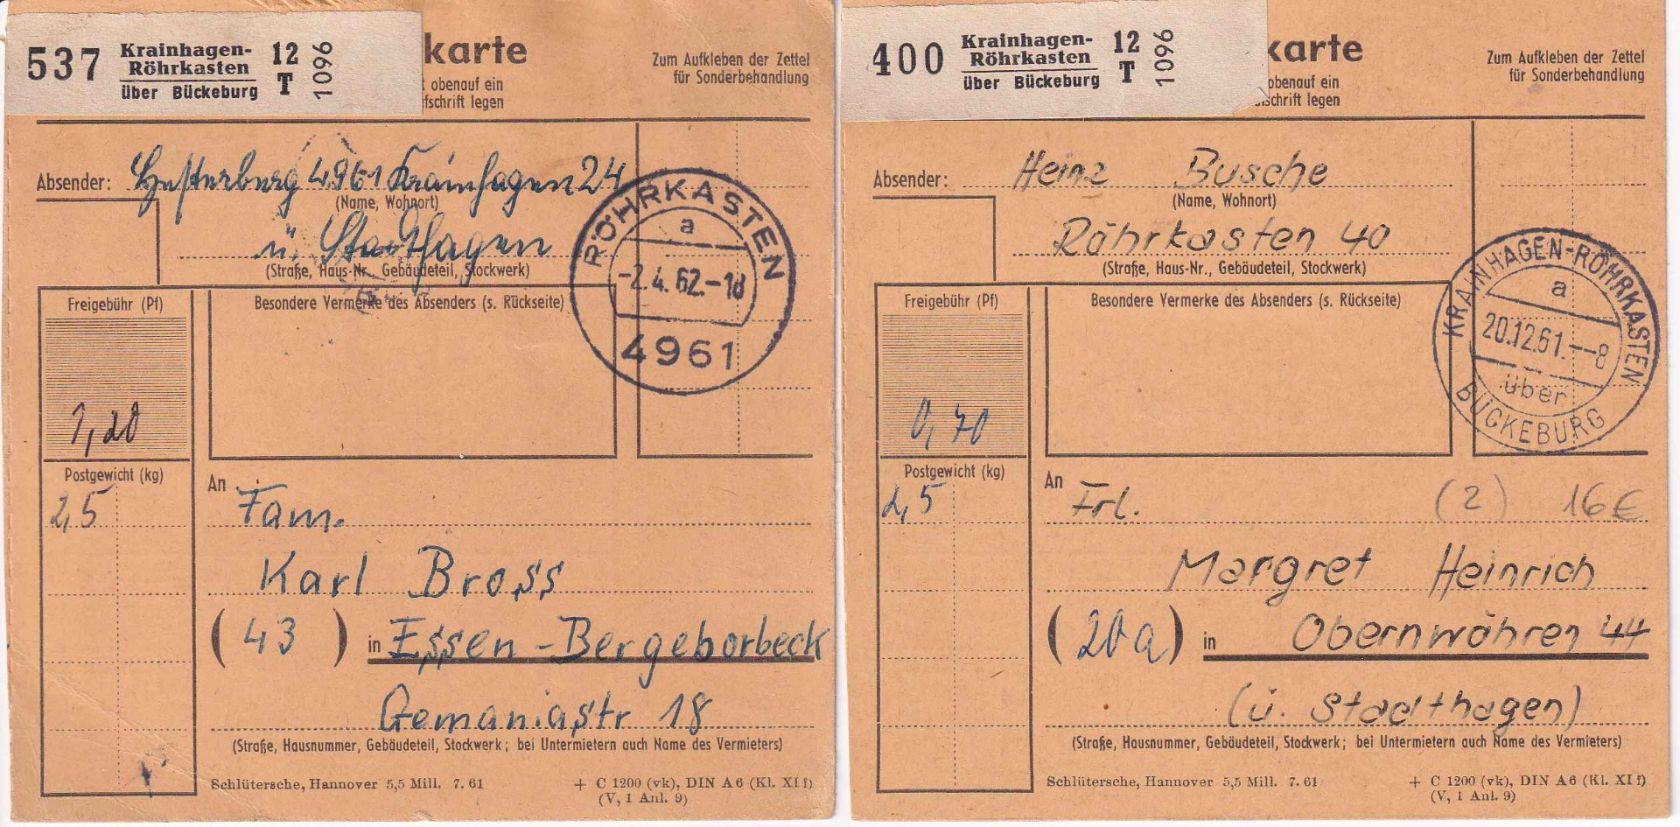 537
Krainhagen-
Röhrkasten
über Bückeburg
12
T
1096
karte
obenauf ein
fschrift legen
Zum Aufkleben der Zettel
für Sonderbehandlung
Absender: Hesterberg 4961 Krainhagen 24
(Name, Wohnort)
ü. Stadthagen
(Straße, Haus-Nr., Gebäudeteil, Stockwerk)
RÖHRKASTEN
a
-2.4.62.-18
4961
Freigebühr (Pf)
Besondere Vermerke des Absenders (s. Rückseite)
1,20
Postgewicht (kg)
2,5
An Fam.
Karl Bross
(43) in Essen-Bergeborbeck
Gemaniastr 18
(Straße, Hausnummer, Gebäudeteil, Stockwerk; bei Untermietern auch Name des Vermieters)
Schlütersche, Hannover 5,5 Mill. 7. 61
+ C 1200 (vk), DIN A 6 (Kl. XI f)
(V, 1 Anl. 9)
400
Krainhagen-
Röhrkasten
über Bückeburg
12
T
1096
karte
obenauf ein
schrift legen
Zum Aufkleben der Zettel
für Sonderbehandlung
Absender: Heinz Busche
(Name, Wohnort)
Röhrkasten 40
(Straße, Haus-Nr., Gebäudeteil, Stockwerk)
KRAINHAGEN-RÖHRKASTEN
a
20.12.61.--8
über
BÜCKEBURG
Freigebühr (Pf)
Besondere Vermerke des Absenders (s. Rückseite)
0,70
Postgewicht (kg)
2,5
An Frl.
(2) 16€
Margret Heinrich
(20a) in Obernwöhren 44
(ü. Stadthagen)
(Straße, Hausnummer, Gebäudeteil, Stockwerk; bei Untermietern auch Name des Vermieters)
Schlütersche, Hannover 5,5 Mill. 7. 61
+ C 1200 (vk), DIN A 6 (Kl. XI f)
(V, 1 Anl. 9)